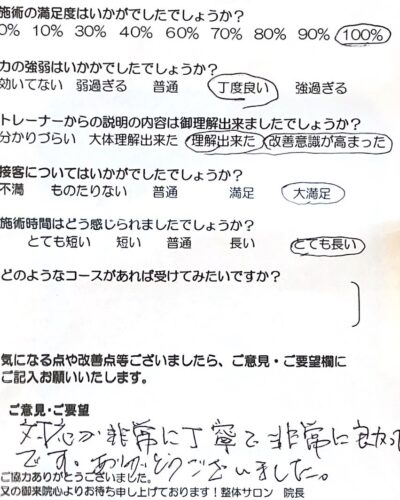 施術の満足度はいかがでしたでしょうか?
0% 10% 30% 40% 60% 70% 80% 90% 100%
力の強弱はいかかでしたでしょうか?
効いてない 弱過ぎる 普通 丁度良い 強過ぎる
トレーナーからの説明の内容は御理解出来ましたでしょうか?
分かりづらい 大体理解出来た 理解出来た 改善意識が高まった
接客についてはいかがでしたでしょうか?
不満 ものたりない 普通 満足 大満足
施術時間はどう感じられましたでしょうか?
とても短い 短い 普通 長い とても長い
どのようなコースがあれば受けてみたいですか?
気になる点や改善点等ございましたら、ご意見・ご要望欄に
ご記入お願いいたします。
ご意見・ご要望
対応が非常に丁寧で非常に良かった
です。ありがとうございました。
ご協力ありがとうございました。
又の御来院心よりお待ち申し上げております!整体サロン 院長